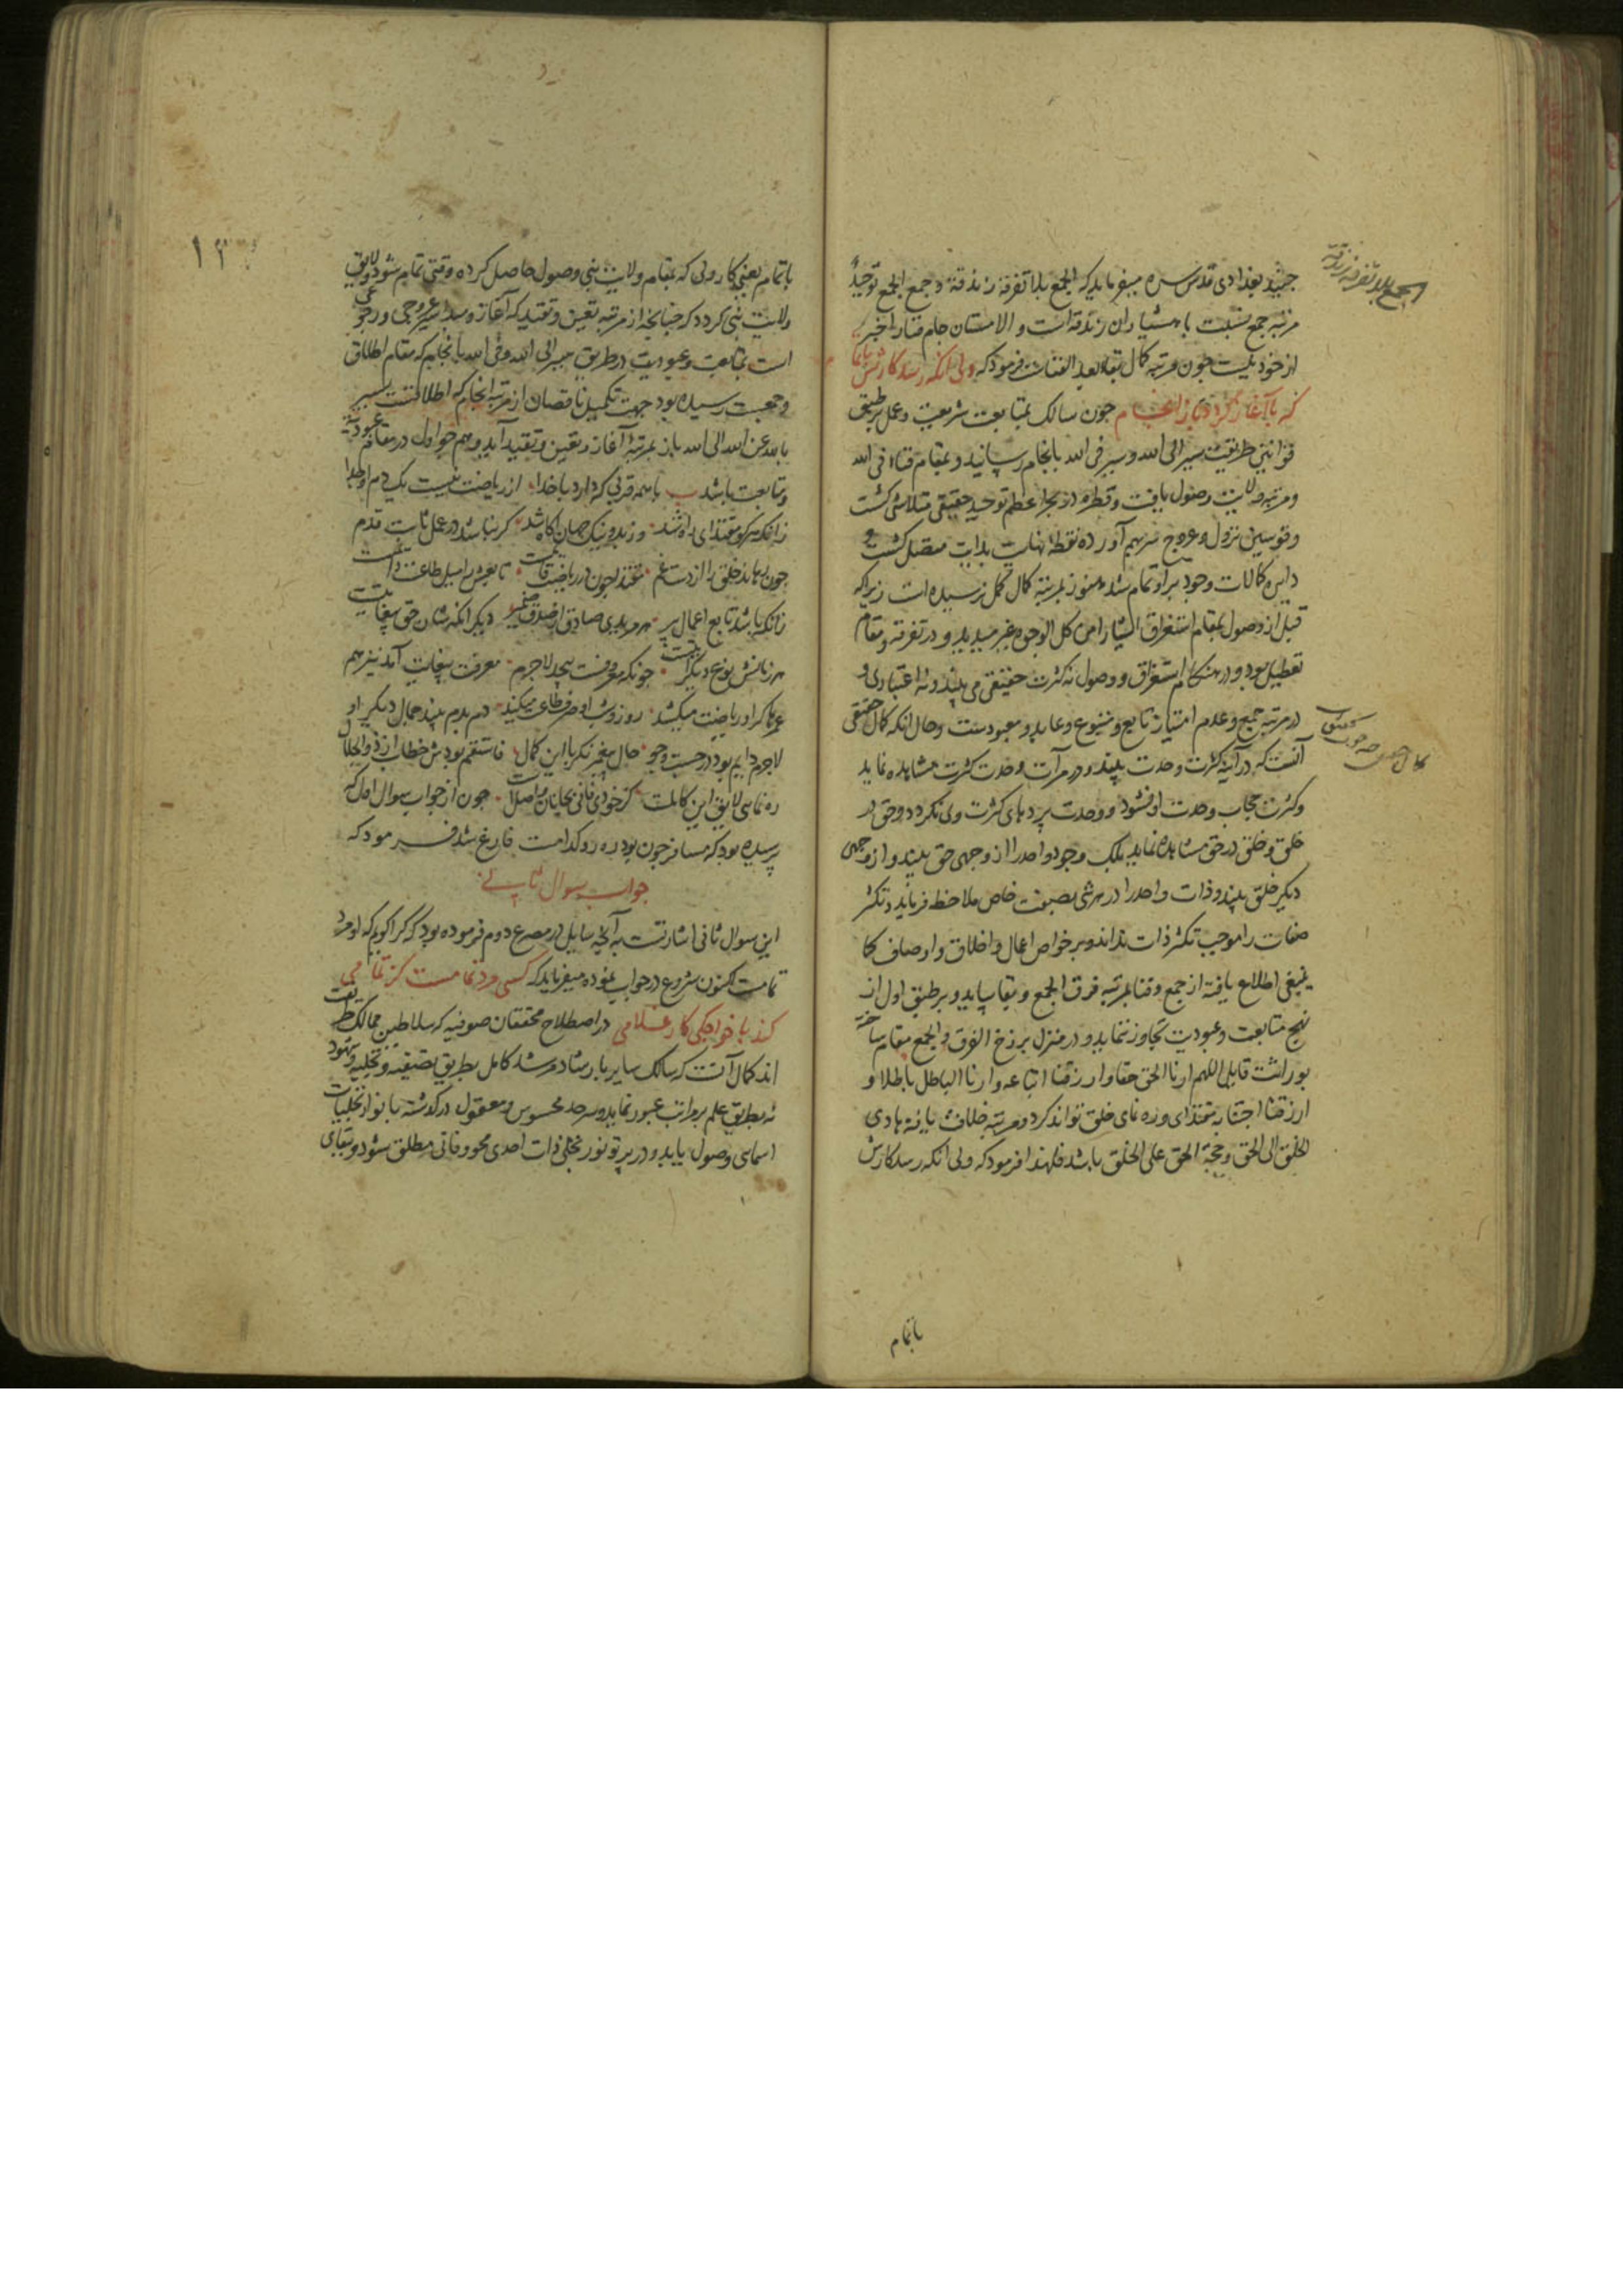 جنید بغدادی قدس سره میفرماید که الجمع بلا تفرقة زندقة و جمع الجمع توحید
مرتبه جمع نسبت با هشیاران زندقه است و الا مستان جام فنا را خبر
از خود نیست چون مرتبه کمال بقا بعد الفناست فرمود که ولی آنکه رسد کارش باتمام
که با آغاز گردد باز از انجام چون سالک بمتابعت شریعت و عمل بر طبق
قوانین طریقت سیر الی الله و سیر فی الله بانجام رسانید و بمقام فنا فی الله
و مرتبه ولایت وصول یافت و قطره در بحر اعظم توحید حقیقی متلاشی گشت
و قوسین نزول و عروج سر بهم آورده نقطه نهایت ببدایت متصل گشت و
دایره کمالات وجود بر او تمام شد هنوز بمرتبه کمال مکمل نرسیده است زیرا که
قبل از وصول بمقام استغراق اشیا را من کل الوجوه غیر میدید و در تفرقه و مقام
تعطیل بود و در هنگام استغراق و وصول نه کثرت حقیقی می بیند و نه اعتباری و
در مرتبه جمع و عدم امتیاز تابع و متبوع و عابد و معبودست و حال آنکه کمال حقیقی
آنست که در آینه کثرت وحدت بیند و در مرآت وحدت کثرت مشاهده نماید
و کثرت حجاب وحدت او نشود و وحدت پرده های کثرت وی نگردد و حق در
خلق و خلق در حق مشاهده نماید بلک وجود واحد را از وجهی حق بیند و از وجهی
دیگر خلق بیند و ذات واحد را در هر شی بصفت خاص ملاحظه فرماید و تکثر
صفات را موجب تکثر ذات نداند و بر خواص اعمال و اخلاق و اوصاف کما
ینبغی اطلاع یافته از جمع و فنا بمرتبه فرق الجمع و بقا بیاید و بر طبق اول از
نهج متابعت و عبودیت تجاوز ننماید و در منزل برزخ الفرق و الجمع مقام ساخته
بوراثت قایل اللهم ارنا الحق حقا و ارزقنا اتباعه و ارنا الباطل باطلا و
ارزقنا اجتنابه مقتدای و ره نمای خلق تواند گرد و مرتبه خلافت یافته هادی
الخلق الی الحق و حجة الحق علی الخلق باشد فلهذا فرمود که ولی آنکه رسد کارش
الجمع بلا تفرقة زندقة
باتمام
باتمام یعنی کار ولی که بمقام ولایت نبی وصول حاصل کرده وقتی تمام شود و لایق
ولایت نبی گردد که چنانچه از مرتبه تعین و تقید که آغاز و مبداء سیر عروجی و رجوعی
است بمتابعت و عبودیت در طریق سیر الی الله و فی الله بانجام که مقام اطلاق
و جمعیت رسیده بود جهت تکمیل ناقصان از مرتبه انجام که اطلاقست بسیر
بالله عن الله الی الله باز بمرتبه آغاز و تعین و تقید آید و هم چو اول در مقام عبودیت
و متابعت باشد با همه قربی که دارد با خدا از ریاضت نیست یک دم او جدا
زانکه هر کو مقتدای راه شد و ز بد و نیک جهان آگاه شد گر نباشد در عمل ثابت قدم
چون رهاند خلق را از دست غم مقتدا چون در ریاضت قایمست تابعش را میل طاعت دایمست
زانکه باشد تابع اعمال پیر هر مریدی صادق از صدق ضمیر دیگر آنکه شان حق بیغایتست
هر زمانش نوع دیگر آیتست چونکه معروفست بیحد لاجرم معرفت بیغایت آمد نیز هم
عمرها گر او ریاضت میکشد روز و شب او صرف طاعت میکند دم بدم بیند جمال دیگر او
لاجرم دایم بود در جست و جو حال پیغمبر نگر با این کمال فاستقم بودش خطاب از ذو الجلال
ره نمایی لایق این کاملست کز خودی فانی بجانان واصلست چون از جواب سوال اول که
پرسیده بود که مسافر چون بود ره رو کدامست فارغ شد فرمود که
جواب سوال ثانی
این سوال ثانی اشارتست به آنچه سایل در مصرع دوم فرموده بود که کرا گویم که او مرد
تمامست اکنون شروع در جواب نموده میفرماید که کسی مرد تمامست کز تمامی
کند با خواجگی کار غلامی در اصطلاح محققان صوفیه که سلاطین ممالک طریقت
اند کمال آنست که سالک سایر بارشاد مرشد کامل بطریق تصفیه و تجلیه و شهود
نه بطریق علم بر مراتب عبور نماید و سرحد محسوس و معقول در گذشته بانوار تجلیات
اسمائی وصول یابد و در پرتو نور تجلی ذات احدی محو و فانی مطلق شود و ببقای